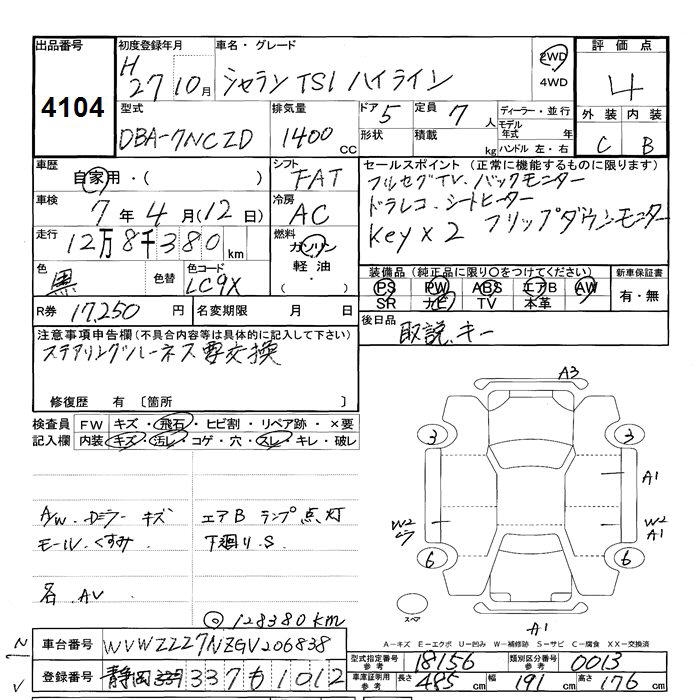 出品番号
4104
初度登録年月
H 27 10月
車名・グレード
シャラン TSI ハイライン
2WD
4WD
評価点
4
外装 内装
C B
型式
DBA-7NCZD
排気量
1400 CC
ドア 5
形状
定員 7 人
積載 kg
ディーラー・並行
モデル年式 年
ハンドル 左・右
車歴
自家用・( )
シフト
FAT
車検
7年4月(12日)
冷房
AC
走行
12万8千380km
燃料
ガソリン
軽油・
( )
色
黒
色替
色コード
LC9X
R券 17,250円
名変期限 月 日
セールスポイント(正常に機能するものに限ります)
フルセグTV、バックモニター
ドラレコ、シートヒーター
Key×2 フリップダウンモニター
装備品(純正品に限り○をつけてください)
PS PW ABS エアB AW
SR ナビ TV 本革
新車保証書
有・無
後日品
取説、キー
注意事項申告欄(不具合内容等は具体的に記入して下さい)
ステアリングハーネス要交換
修復歴 有〔箇所 〕
検査員記入欄
FW キズ・飛石・ヒビ割・リペア跡・×要
内装 キズ・汚レ・コゲ・穴・スレ・キレ・破レ
A/W、Dミラー キズ
モール、くすみ
エアB ランプ点灯
下廻り.S
名.AV
◎128380km
A3
3
3
A1
W2
W2
A1
6
6
スペア
A1
A-キズ E-エクボ U-凹み W-補修跡 S-サビ C-腐食 XX-交換済
N
車台番号 WVWZZZ7NZGV206838
V
登録番号 静岡 337 も 1012
型式指定番号 参考 18156
類別区分番号 参考 0013
車庫証明用 参考
長さ 485cm
幅 191cm
高さ 176cm